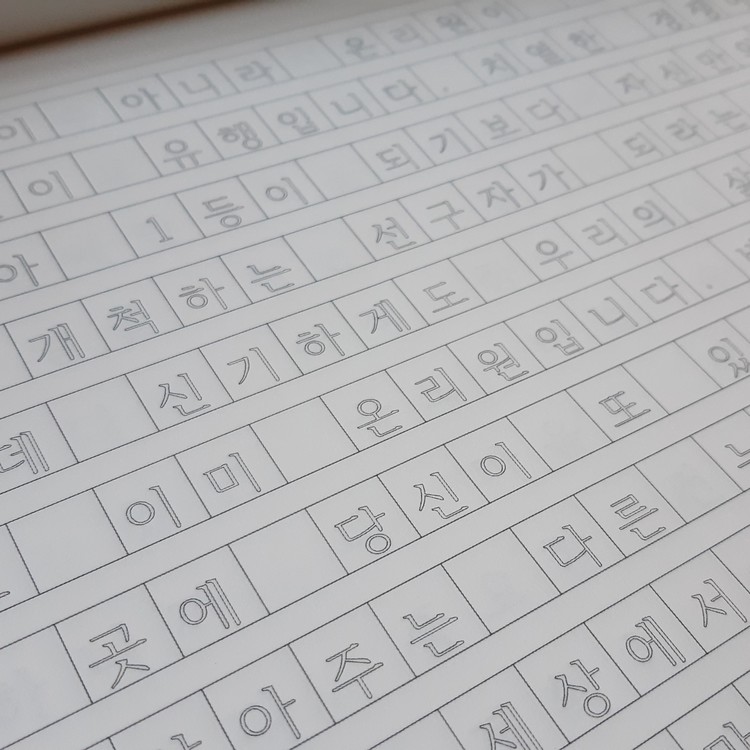 이 아니라 온리원이
이 유행입니다. 치열한 경쟁
아 1등이 되기보다 자신만의
개척하는 선구자가 되라는
데 신기하게도 우리의 삶
이미 온리원입니다.
곳에 당신이 또 있
아주는 다른
세상에서